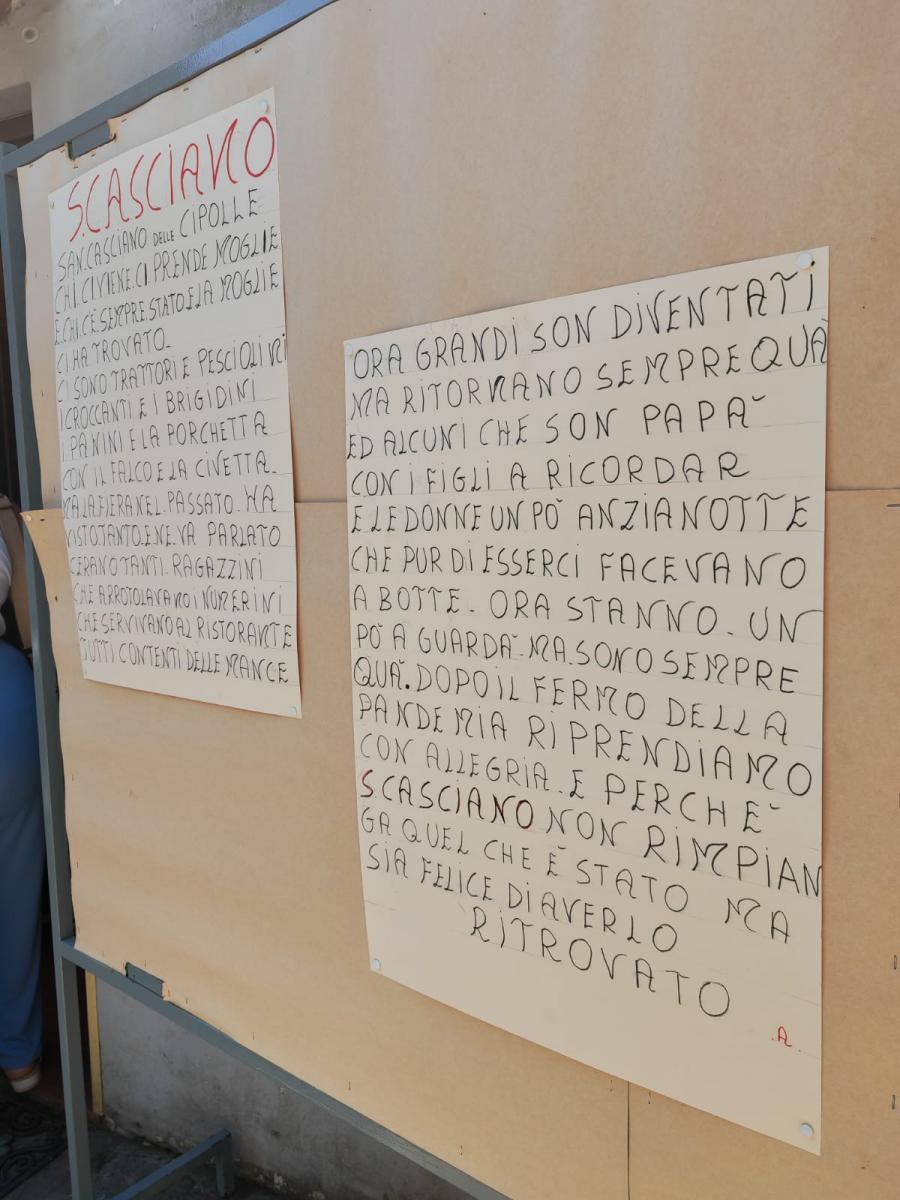 S.CASCIANO
SAN.CASCIANO DELLE CIPOLLE
CHI.CI VIENE.CI PRENDE MOGLIE
E.CHI.C'È SEMPRE STATO E LA MOGLIE
CI HA TROVATO-
CI SONO TRATTORI E PESCIOLINI
I CROCCANTI E I BRIGIDINI
I PANINI E LA PORCHETTA
CON IL FALCO E LA CIVETTA-
MA LA FIERA NEL.PASSATO. HA
VISTO TANTO.E.NE.VA PARLATO
C'ERANO TANTI-RAGAZZINI
CHE ARROTOLAVANO I NUMERINI
CHE SERVIVANO AL RISTORANTE
TUTTI CONTENTI DELLE MANCE
ORA GRANDI SON DIVENTATI
MA RITORNANO SEMPRE QUÀ
ED ALCUNI CHE SON PAPÀ
CON I FIGLI A RICORDAR
E LE DONNE UN PÒ ANZIANOTTE
CHE PUR DI ESSERCI FACEVANO
A BOTTE- ORA STANNO-UN
PÒ A GUARDÀ-MA.SONO SEMPRE
QUÀ.DOPO IL FERMO DELLA
PANDEMIA RIPRENDIAMO
CON ALLEGRIA.E PERCHÈ
S.CASCIANO NON RIMPIAN
GA QUEL CHE È STATO MA
SIA FELICE DI AVERLO
RITROVATO
.A.